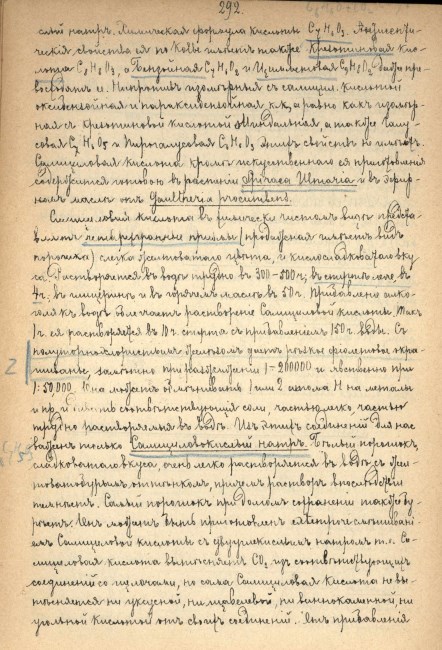 292.
слый натръ. Химическая формула кислоты C7H6O3. Антисепти-
ческія свойства ея по Кольбе имѣютъ также Крезотиновая кис-
лота C8H8O3, а Бензойная C7H6O2 и
восходятъ ее. Напротивъ изомерныя съ салицил. кислотой
оксибензойная и параоксибензойная к.к, а равно какъ изомер-
ная съ крезотиновой кислотой Миндальная, а также Гал-
ловая C7H6O5 и Пирогаллусовая C6H6O3 этихъ свойствъ не имѣютъ.
Салициловая Кислота кромѣ искуственнаго ея приготовленія
содержится готовою въ растеніи Spiraea Ulmaria и въ эфир-
номъ маслѣ отъ Gaultheria procumbens.
Салициловая кислота въ химически чистомъ видѣ предста-
вляетъ призмы (продажная имѣетъ видъ
порошка) слегка желтоватаго цвѣта, и кислосладковатаго вку-
са. Растворяется въ водѣ трудно въ 300-500 ч; въ спиртѣ легко, въ
4ч; въ глицеринѣ и въ горячемъ маслѣ въ 50 ч. Прибавленіе алко-
голя къ водѣ облегчаетъ раствореніе Салициловой кислоты. Такъ
1 ч. ея растворяется въ 10 ч. спирта съ прибавленіемъ 150 ч. воды. Съ
полуторнохлористымъ желѣзомъ даетъ рѣзкое фіолетовое окра-
шиваніе, замѣтное при разжиженіи 1-200000 и явственно при
1:50,000. Она можетъ обмѣнивать 1 или 2 атома H на металлы
и пр. и давать соотвѣтствующія соли, частью легко частью
трудно растворимыя въ водѣ. Изъ этихъ соединеній для насъ
важенъ только Салициловокислый натръ. Бѣлый порошокъ,
сладковатаго вкуса, очень легко растворяется въ водѣ съ жел-
товатобурымъ оттѣнкомъ, причемъ растворъ впослѣдствіи
темнѣетъ. Самый порошокъ при долгомъ сохраненіи также бу-
рѣетъ. Онъ можетъ быть приготовленъ смѣшивані-
емъ Салициловой кислоты съ двууглекислымъ натромъ т.е. Са-
лициловая кислота вытѣсняетъ CO2 изъ соотвѣтствующихъ
соединеній со щелочами, но сама Салициловая кислота не вы-
тѣсняется ни уксусной, ни щавелевой, ни виннокаменной, ни
угольной кислотой отъ своихъ соединеній. Отъ прибавленія